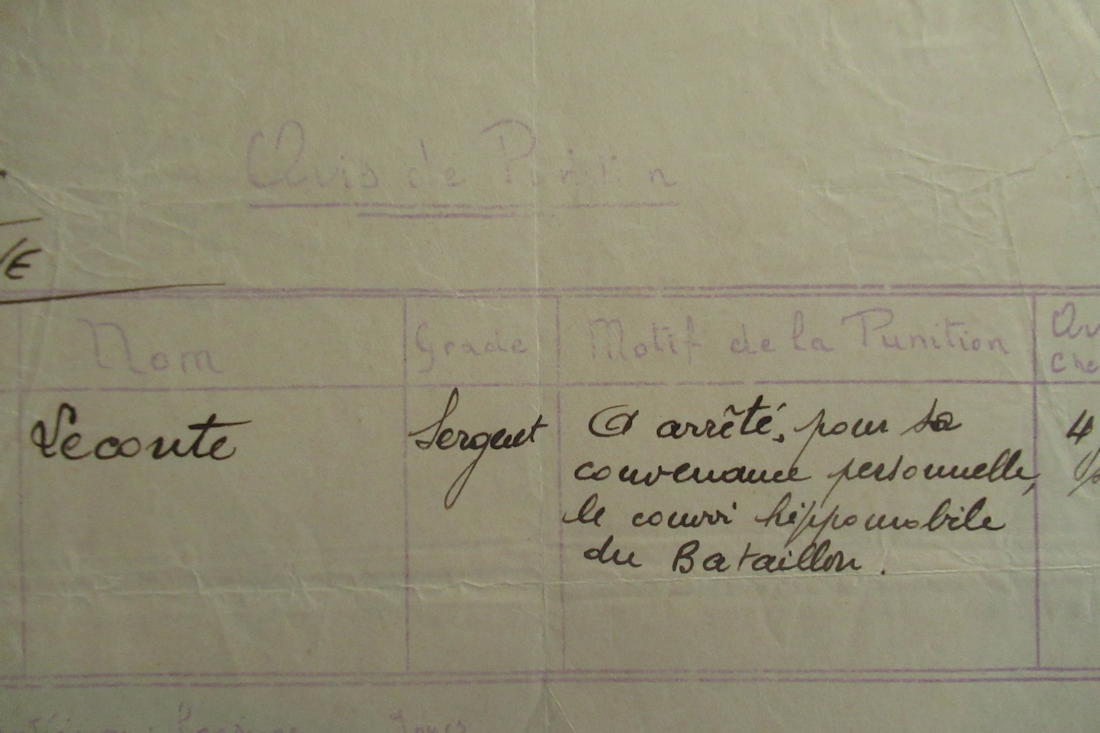 Avis de Punition
Nom Grade Motif de la Punition
Leconte Sergent A arrêté, pour sa
convenance personnelle,
le convoi hippomobile
du Bataillon.
4